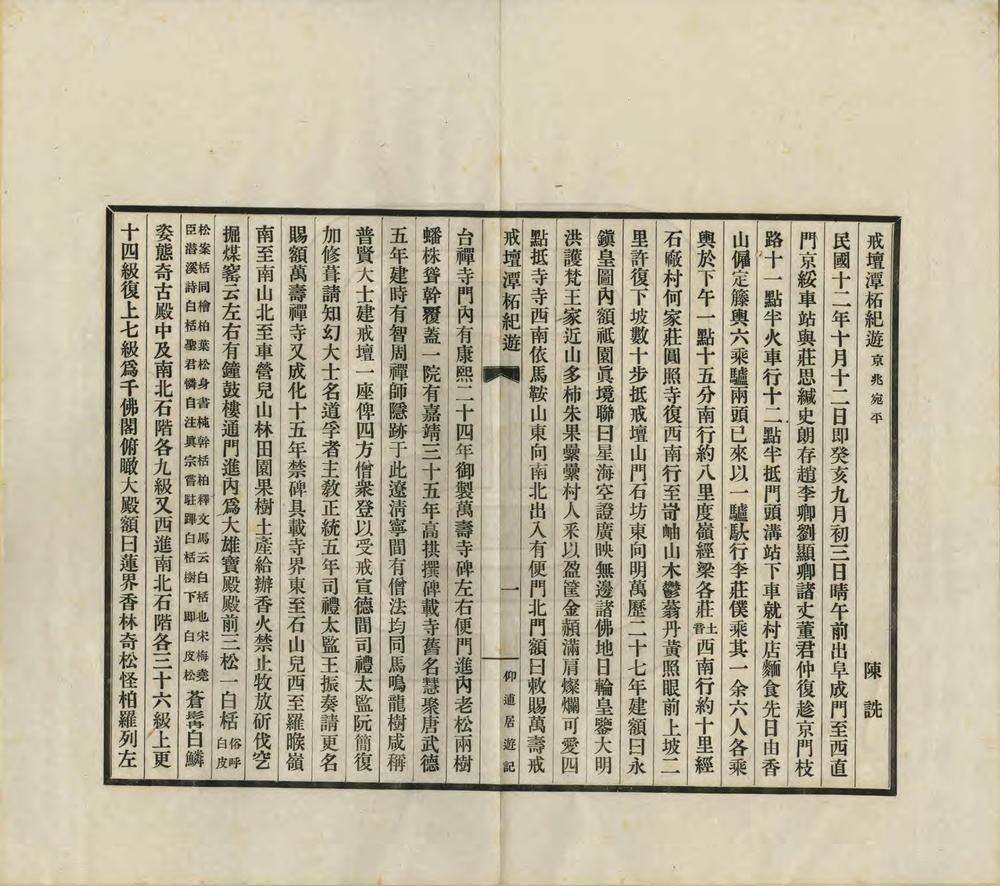 戒壇潭柘紀遊京兆宛平
陳詵
民國十二年十月十二日即癸亥九月初三日晴午前出阜成門至西直
門京綏車站與莊思緘史朗存趙李卿劉顯卿諸丈董君仲復趁京門枝
路十一點半火車行十二點半抵門頭溝站下車就村店麵食先日由香
山僱定籐輿六乘驢兩頭已來以一驢馱行李莊僕乘其一余六人各乘
輿於下午一點十五分南行約八里度嶺經梁各莊土音西南行約十里經
石廠村何家莊圓照寺復西南行至岢岫山木鬱蓊丹黃照眼前上坡二
里許復下坡數十步抵戒壇山門石坊東向明萬歷二十七年建額曰永
鎭皇圖內額祇園眞境聯曰星海空證廣映無邊諸佛地日輪皇鑒大明
洪護梵王家近山多柿朱果纍纍村人采以盈筐金頳滿肩燦爛可愛四
點抵寺寺西南依馬鞍山東向南北出入有便門北門額曰敕賜萬壽戒
戒壇潭柘紀遊
一
仰蘧居遊記
台禪寺門內有康熙二十四年御製萬壽寺碑左右便門進內老松兩樹
蟠株聳幹覆蓋一院有嘉靖三十五年高拱撰碑載寺舊名慧聚唐武德
五年建時有智周禪師隱跡于此遼淸寧間有僧法均同馬鳴龍樹咸稱
普賢大士建戒壇一座俾四方僧衆登以受戒宣德間司禮太監阮簡復
加修葺請知幻大士名道孚者主敎正統五年司禮太監王振奏請更名
賜額萬壽禪寺又成化十五年禁碑具載寺界東至石山兒西至羅㬋嶺
南至南山北至車營兒山林田園果樹土產給辦香火禁止牧放斫伐空
掘煤窰云左右有鐘鼓樓通門進內爲大雄寶殿殿前三松一白栝俗呼白皮
松案栝同檜柏葉松身書杶幹栝柏釋文馬云白栝也宋梅堯
臣潛溪詩白栝聖君憐自注眞宗嘗駐蹕白栝樹下即白皮松蒼髯白鱗
姿態奇古殿中及南北石階各九級又西進南北石階各三十六級上更
十四級復上七級爲千佛閣俯瞰大殿額曰蓮界香林奇松怪柏羅列左